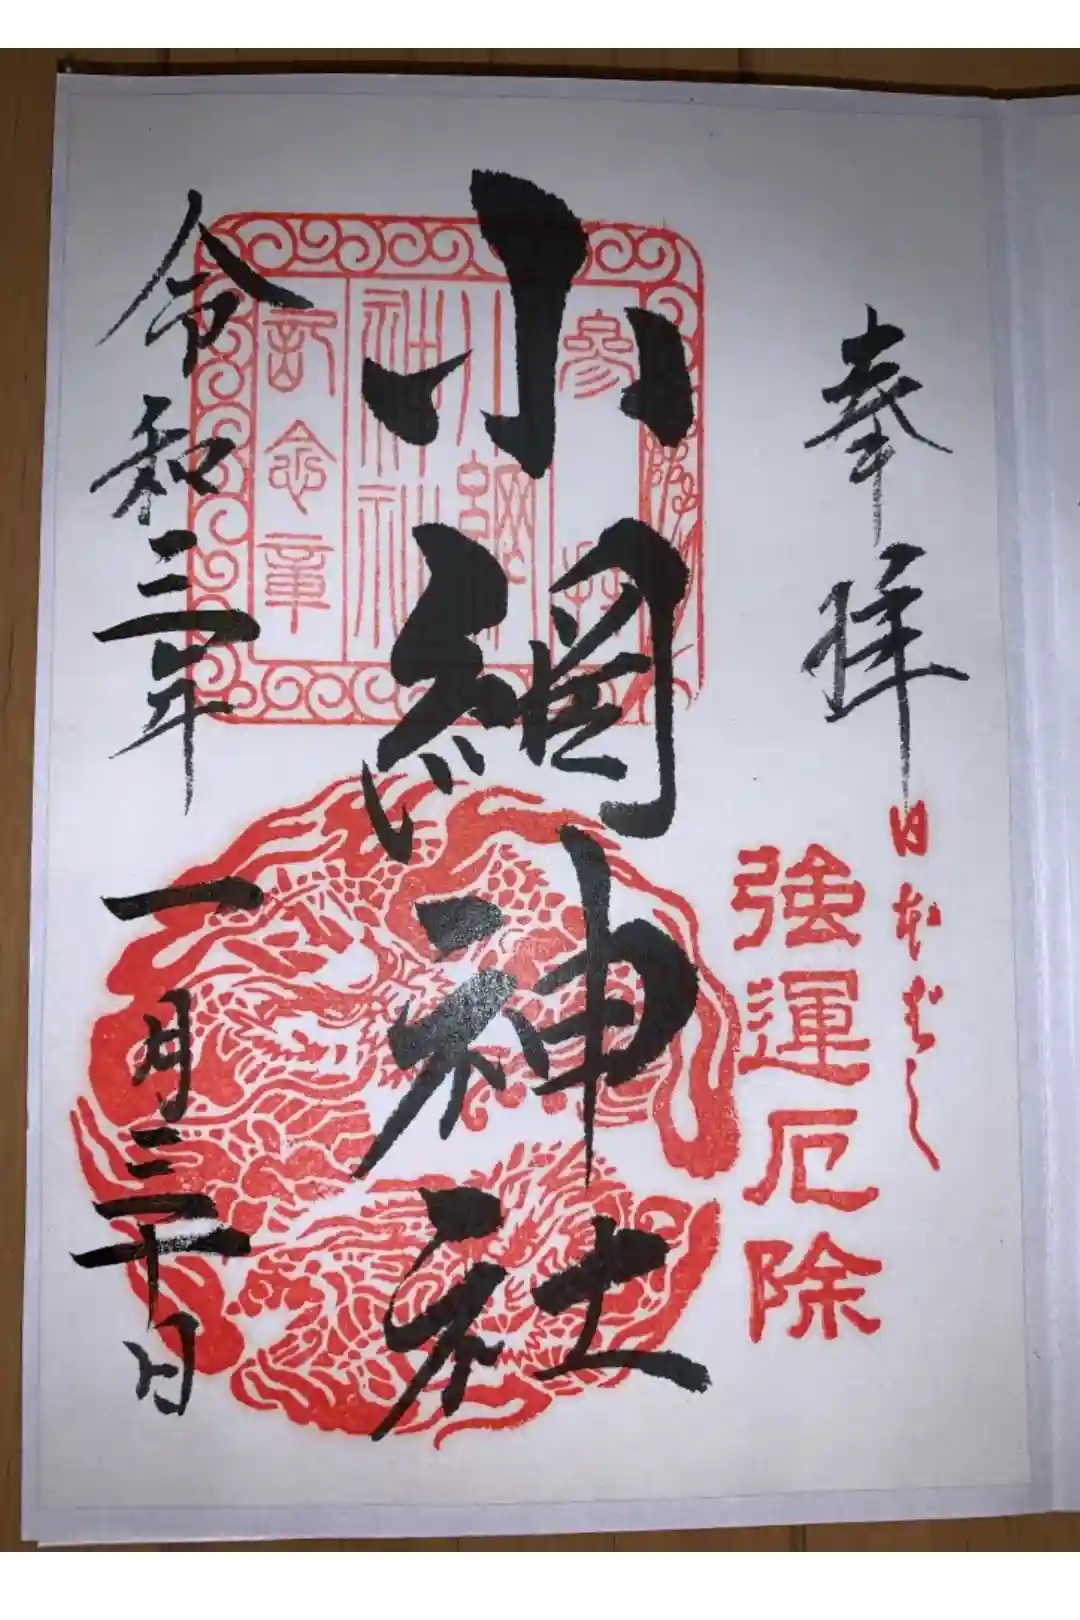 奉拝
日本ばし
強運厄除
小網神社
参拝
小網神社
記念章
令和二年一月三十日